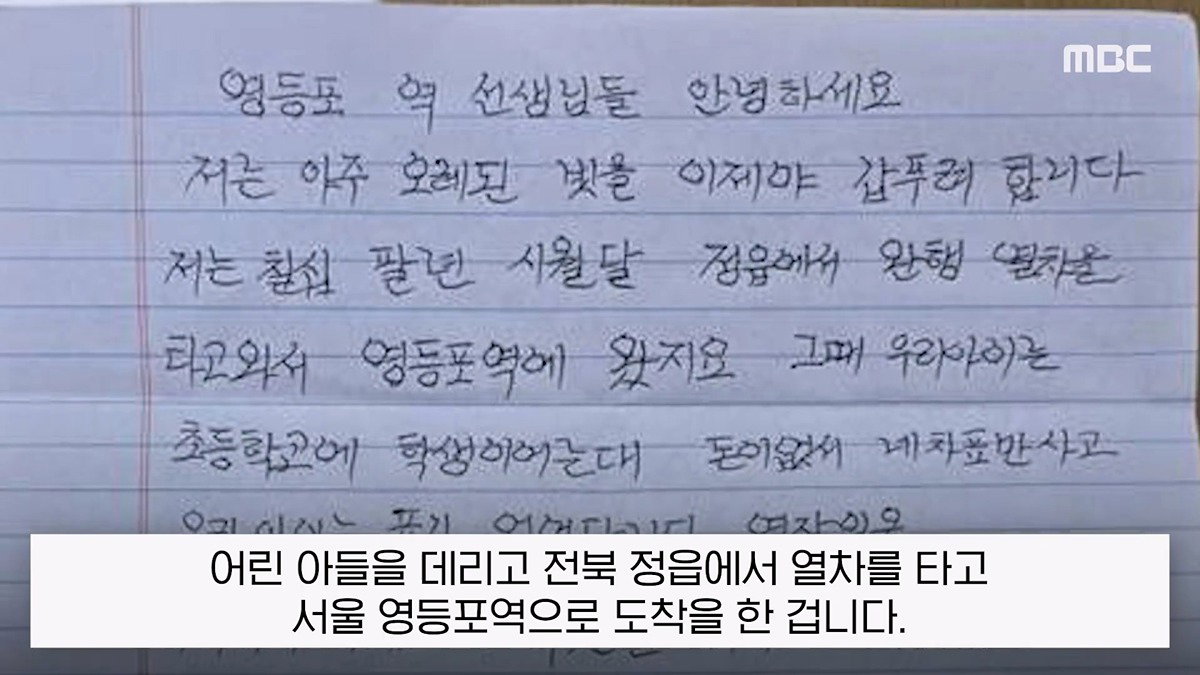 MBC
영등포 역 선생님들 안녕하세요
저는 아주 오레된 빚을 이제야 갑푸려 합니다
저는 칠십 팔년 시월달 정읍에서 완행 열차을
타고와서 영등포역에 왔지요 그때 우리아이는
초등학교에 학생이어는대 돈이없서 네차표만사고
어린 아들을 데리고 전북 정읍에서 열차를 타고
서울 영등포역으로 도착을 한 겁니다.